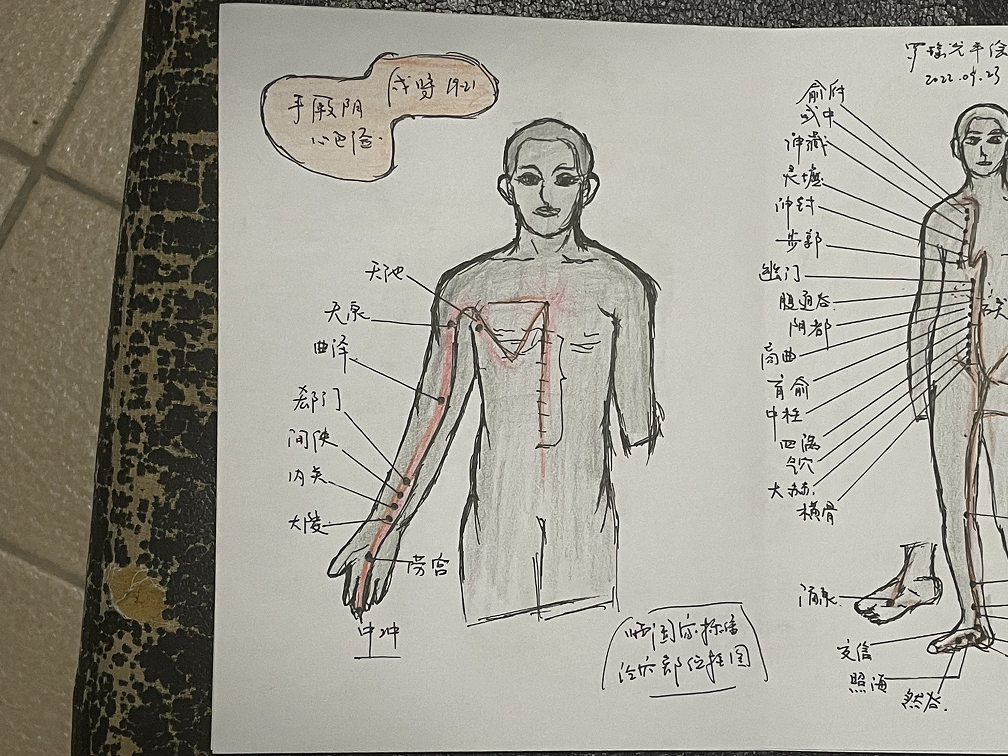 手厥阴
心包经
戌时 19-21
天池
天泉
曲泽
郄门
间使
内关
大陵
劳宫
中冲
国家标准
经穴部位挂图
2022.09.23
俞府
彧中
神藏
灵墟
神封
步郭
幽门
腹通谷
阴都
商曲
肓俞
中柱
四满
气穴
大赫
横骨
涌泉
交信
照海
然谷